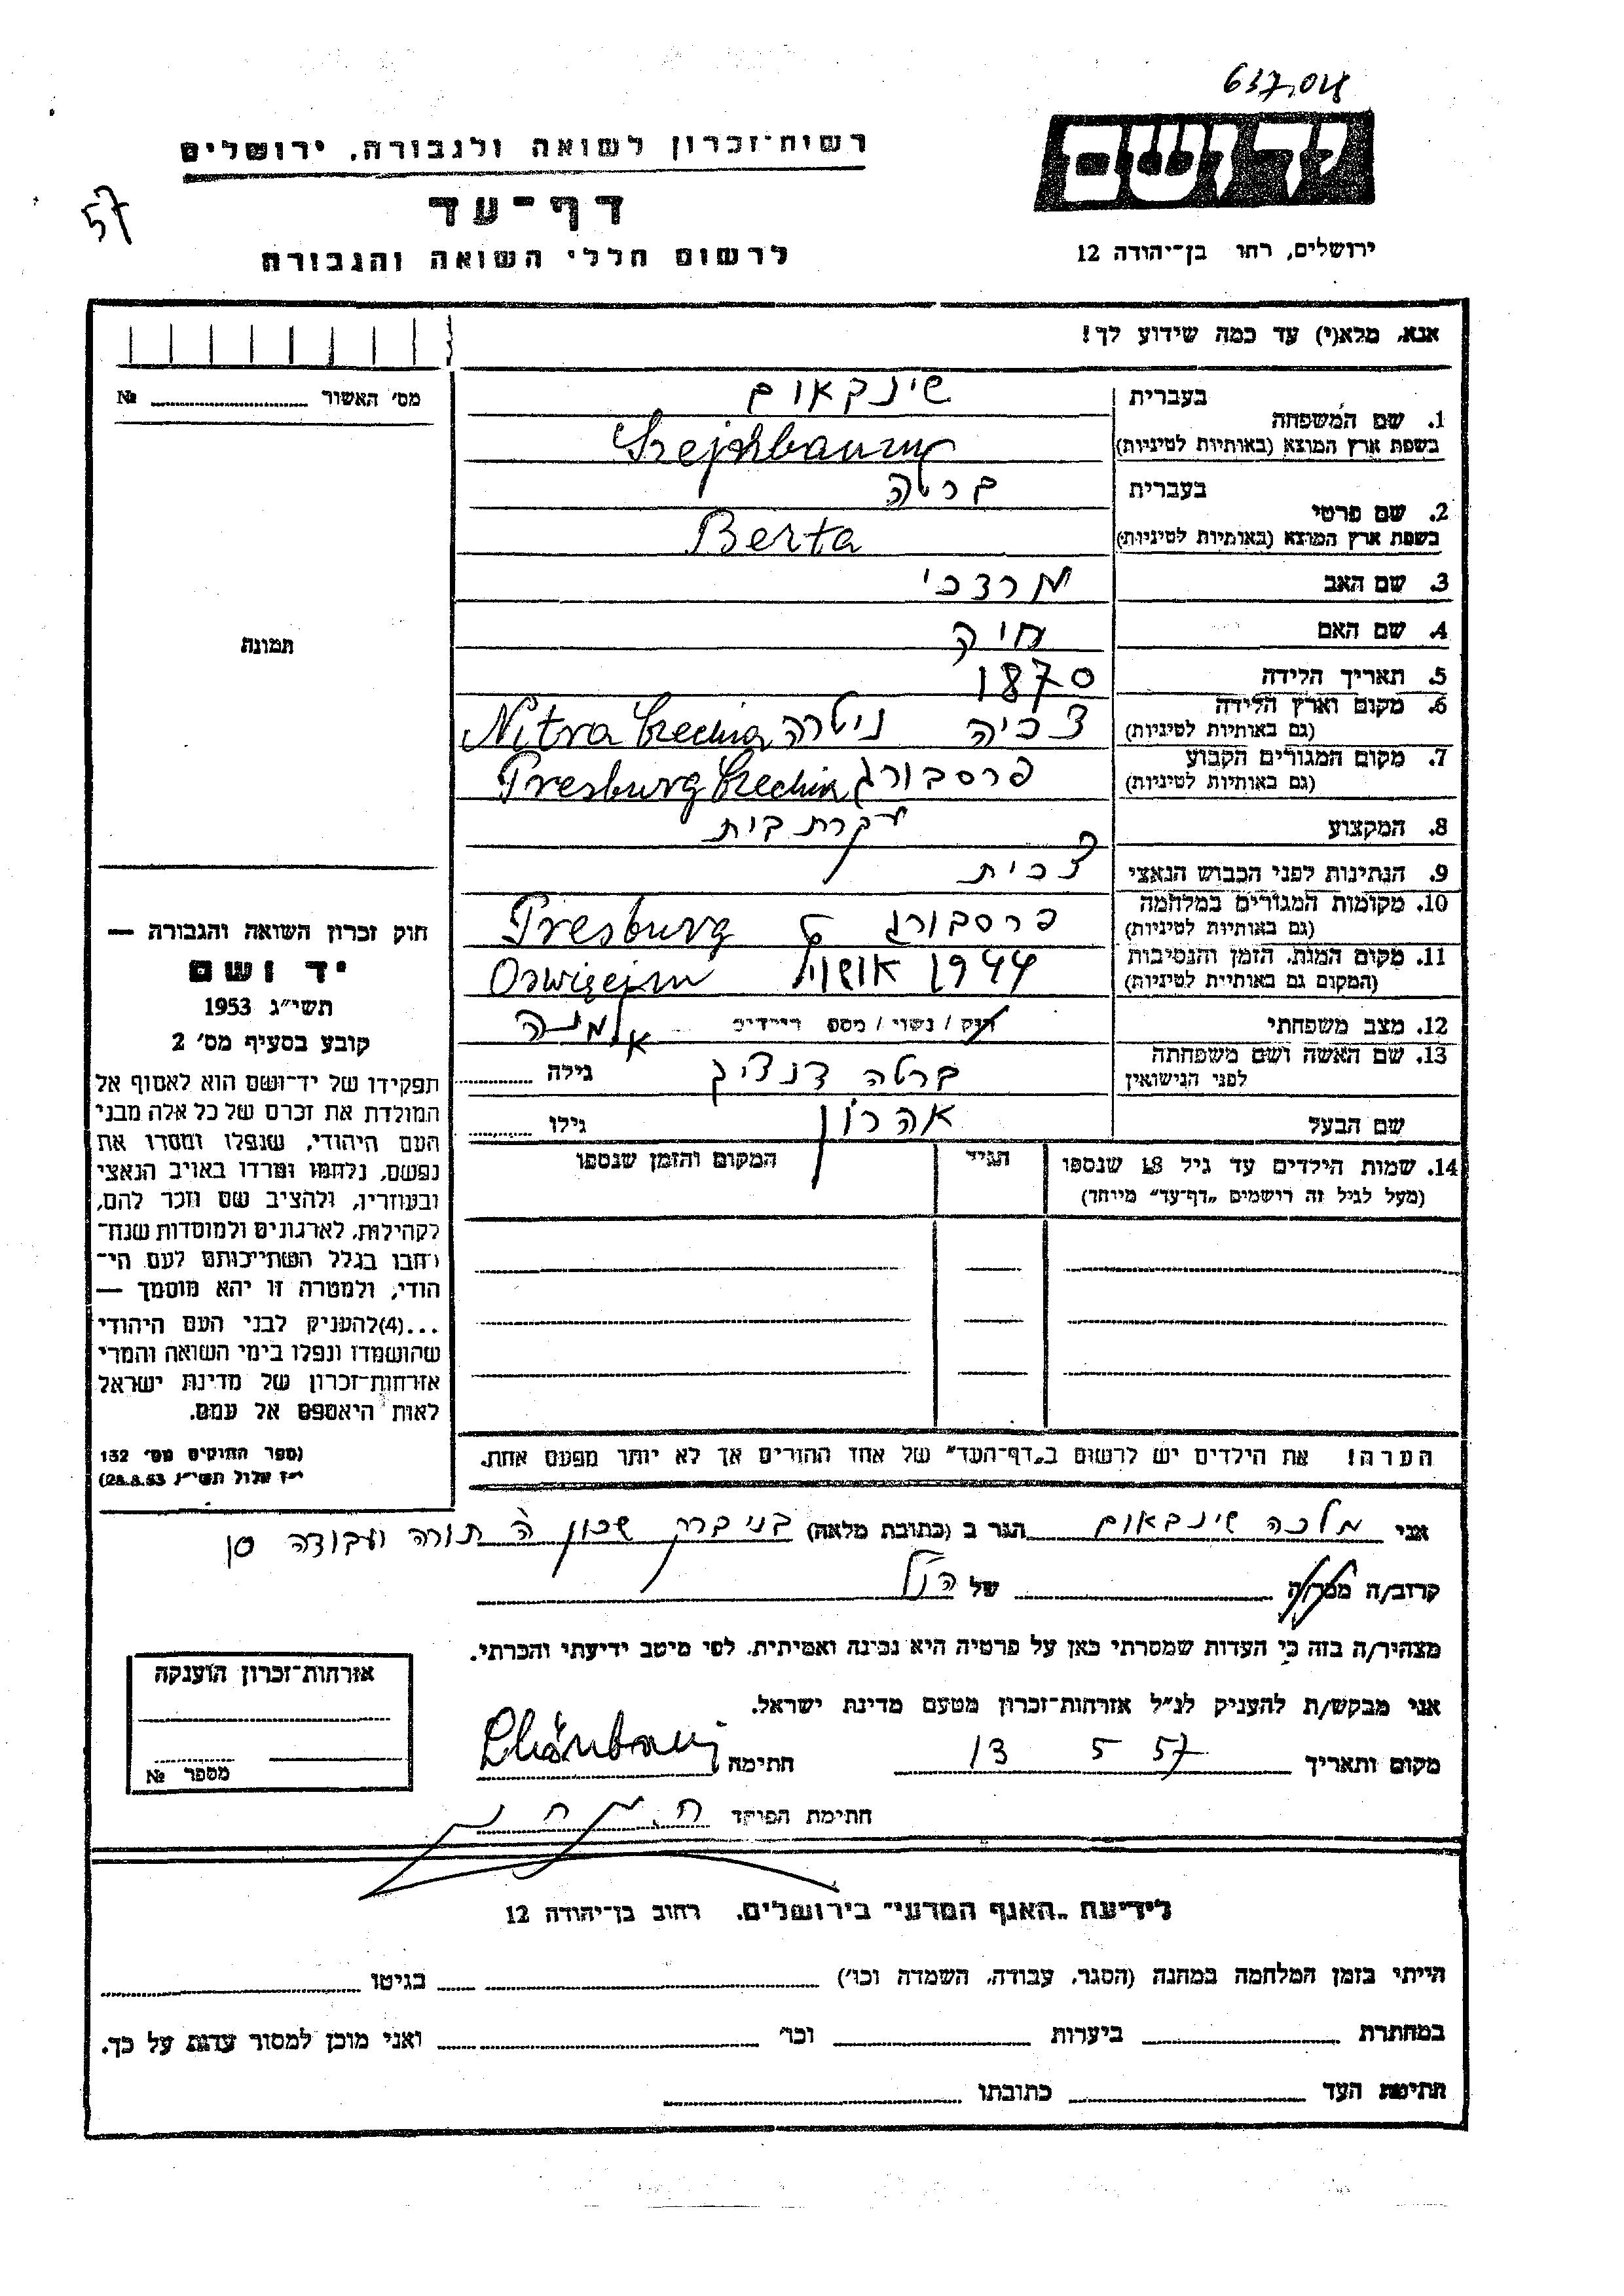 637,04
יד ושם
רשות־זכרון לשואה ולגבורה, ירושלים
57
דף־עד
לרשום חללי השואה והגבורה
ירושלים, רחו בן־יהודה 12
אנא, מלא(י) עד כמה שידוע לך!
מס׳ האשור №
תמונה
1. שם המשפחה בעברית שינבאום
בשפת ארץ המוצא (באותיות לטיניות) Szejnbaum
2. שם פרטי בעברית ברטה
בשפת ארץ המוצא (באותיות לטיניות) Berta
3. שם האב מרדכי
4. שם האם חיה
5. תאריך הלידה 1870
6. מקום וארץ הלידה (גם באותיות לטיניות) צכיה ניטרה Nitra Czechia
7. מקום המגורים הקבוע (גם באותיות לטיניות) פרסבורג Presburg Czechia
8. המקצוע עקרת בית
9. הנתינות לפני הכבוש הנאצי צכית
10. מקומות המגורים במלחמה (גם באותיות לטיניות) פרסבורג Presburg
11. מקום המות, הזמן והנסיבות (המקום גם באותיות לטיניות) 1944 Oswięcim
12. מצב משפחתי רוק / נשוי / מספר הילדים אלמנה
13. שם האשה ושם משפחתה לפני הנישואין ברטה גילה
שם הבעל אהרון גילו
14. שמות הילדים עד גיל 18 שנספו הגיל המקום והזמן שנספו
(מעל לגיל זה רושמים „דף־עד״ מיוחד)
הערה! את הילדים יש לרשום ב„דף־העד״ של אחד ההורים אך לא יותר מפעם אחת.
חוק זכרון השואה והגבורה —
יד ושם
תשי״ג 1953
קובע בסעיף מס׳ 2
תפקידו של יד־ושם הוא לאסוף אל
המולדת את זכרם של כל אלה מבני
העם היהודי, שנפלו ומסרו את
נפשם, נלחמו ומרדו באויב הנאצי
ובעוזריו, ולהציב שם וזכר להם,
לקהילות, לארגונים ולמוסדות שנח־
רחבו בגלל השתייכותם לעם הי־
הודי, ולמטרה זו יהא מוסמך —
...(4)להעניק לבני העם היהודי
שהושמדו ונפלו בימי השואה והמרי
אזרחות־זכרון של מדינת ישראל
לאות היאספם אל עמם.
(ספר החוקים מס׳ 132
י״ז אלול תשי״ג 28.8.53)
אני מלכה שינבאום הגר ב (כתובת מלאה) בני ברק שכון ה׳ תורה ועבודה
קרוב/ה מכר/ה של הנ״ל
מצהיר/ה בזה כי העדות שמסרתי כאן על פרטיה היא נכונה ואמיתית, לפי מיטב ידיעתי והכרתי.
אני מבקש/ת להעניק לנ״ל אזרחות־זכרון מטעם מדינת ישראל.
מקום ותאריך 13 5 57 חתימה
חתימת הפוקד
אזרחות־זכרון הוענקה
מספר №
לידיעת „האגף המדעי״ בירושלים, רחוב בן־יהודה 12
הייתי בזמן המלחמה במחנה (הסגר, עבודה, השמדה וכו׳) בגיטו
במחתרת ביערות וכו׳ ואני מוכן למסור עדות על כך.
חתימת העד כתובתו